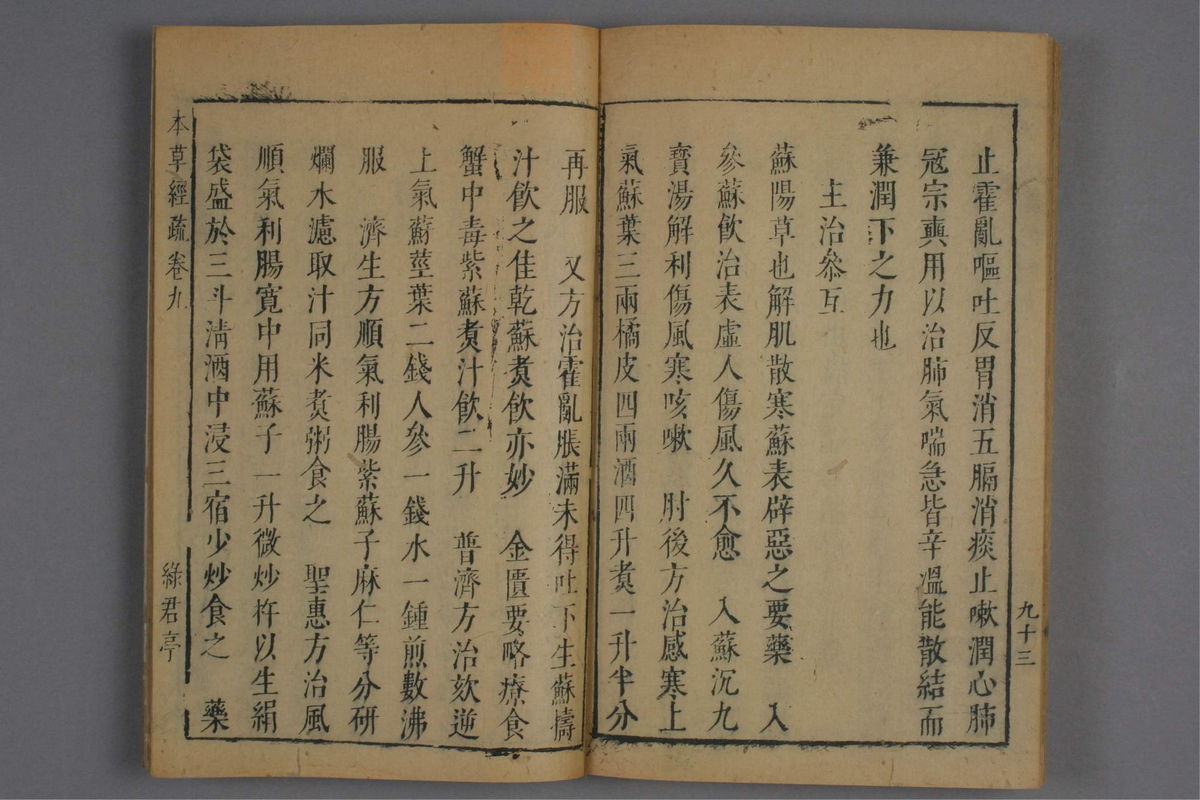 止霍亂嘔吐反胃消五膈消痰止嗽潤心肺
冦宗奭用以治肺氣喘急皆辛溫能散結而
兼潤下之力也
主治叅互
蘇陽草也解肌散寒蘇表辟惡之要藥　入
參蘇飲治表虛人傷風久不愈　入蘇沉九
寶湯解利傷風寒咳嗽　肘後方治感寒上
氣蘇葉三兩橘皮四兩酒四升煑一升半分
九十三
再服　又方治霍亂脹滿未得吐下生蘇擣
汁飲之佳乾蘇煑飲亦妙　金匱要略療食
蟹中毒紫蘇煑汁飲二升　普濟方治欬逆
上氣蘇莖葉二錢人參一錢水一鍾煎數沸
服　濟生方順氣利腸紫蘇子麻仁等分硏
爛水濾取汁同米煑粥食之　聖惠方治風
順氣利腸寬中用蘇子一升微炒杵以生絹
袋盛於三斗淸酒中浸三宿少炒食之　藥
本草經疏卷九
綠君亭